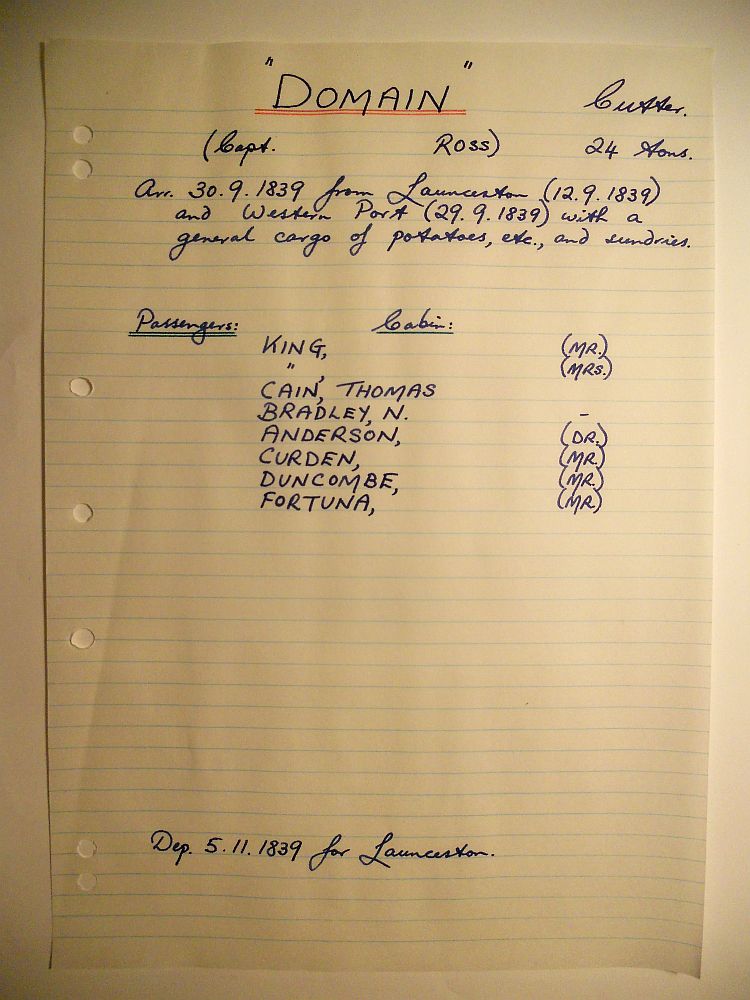 "DOMAIN" Cutter.
(Capt. ROSS) 24 tons.
Arr. 30.9.1839 from Launceston (12.9.1839)
and Western Port (29.9.1839) with a
general cargo of potatoes, etc., and sundries.
Passengers: Cabin:
KING, (MR.)
", (MRS.)
CAIN, THOMAS
BRADLEY, N. –
ANDERSON, (DR.)
CURDEN, (MR.)
DUNCOMBE, (MR.)
FORTUNA, (MR)
Dep. 5.11.1839 for Launceston.